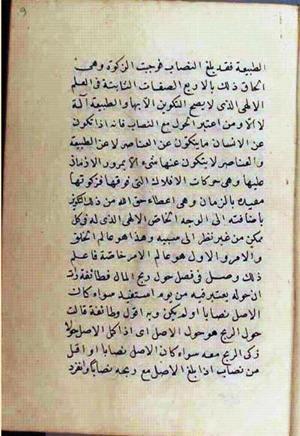 الطبيعة فقد بلغ النصاب فوجبت الزكوة وهى
الحاق ذلك بالاربع الصفات الثابتة فى العلم
الالهى الذى لا يصح التكوين الا بها والطبيعة آلة
لا اله ومن اعتبر الحول مع النصاب فانه اذا تكون
عن الانسان ما يكون عن العناصر لا عن الطبيعة
والعناصر لا يتكون عنها شىء الا بمرور الازمان
عليها وهى حركات الافلاك التى فوقها فزكوتها
مقيدة بالزمان وهى اعطاء حق الله من ذلك التكوين
باضافته الى الوجه الخاص الالهى الذى له فى كل
ممكن من غير نظر الى سببه وهذا هو عالم الخلق
والامر والاول هو عالم الامر خاصة فاعلم
ذلك وصل فى فصل حول ربح المال فطائفة رأت
ان حوله يعتبر فيه من يوم استفيد سواء كان
الاصل نصابا او لم يكن وبه اقول وطائفة قالت
حول الربح هو حول الاصل اى اذا كمل الاصل حولا
زكى الربح معه سواء كان الاصل نصابا او اقل
من نصاب اذا بلغ الاصل مع ربحه نصابا وانفرد